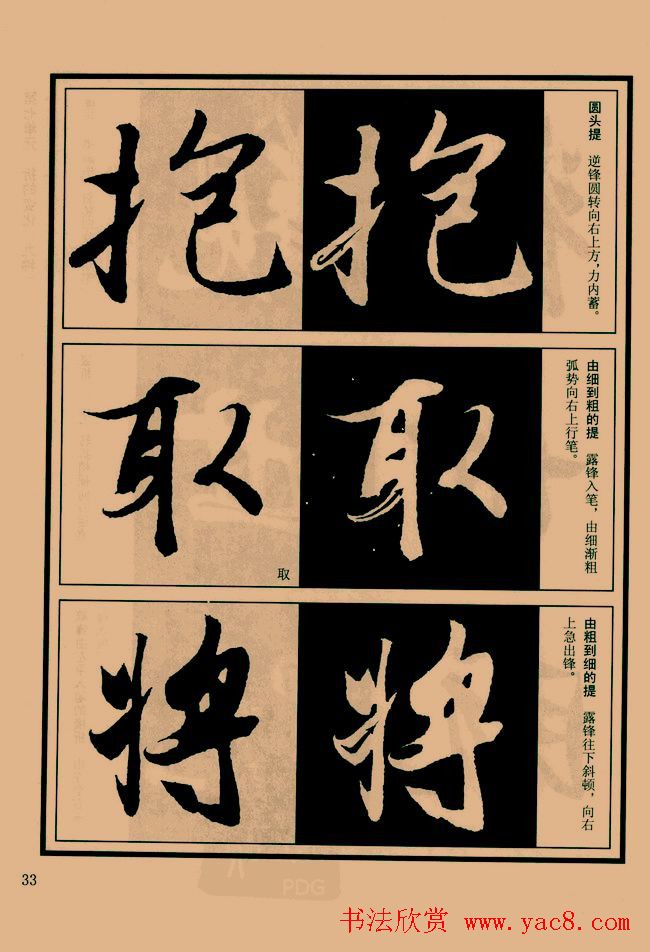 圆头提 逆锋圆转向右上方，力内蓄。
抱 抱
由细到粗的提 露锋入笔，由细渐粗
弧势向右上行笔。
取 取
取
由粗到细的提 露锋往下斜顿，向右
上急出锋。
将 将
33
PDG
书法欣赏 www.yac8.com